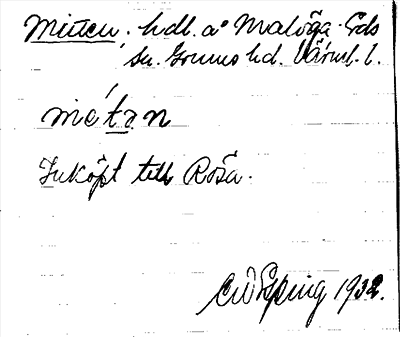 Mitten. hdl. a° Malöga. Eds
sn. Grums hd. Värml. l.
métan
Inköpt till Rösa.
CW Epping 1932.